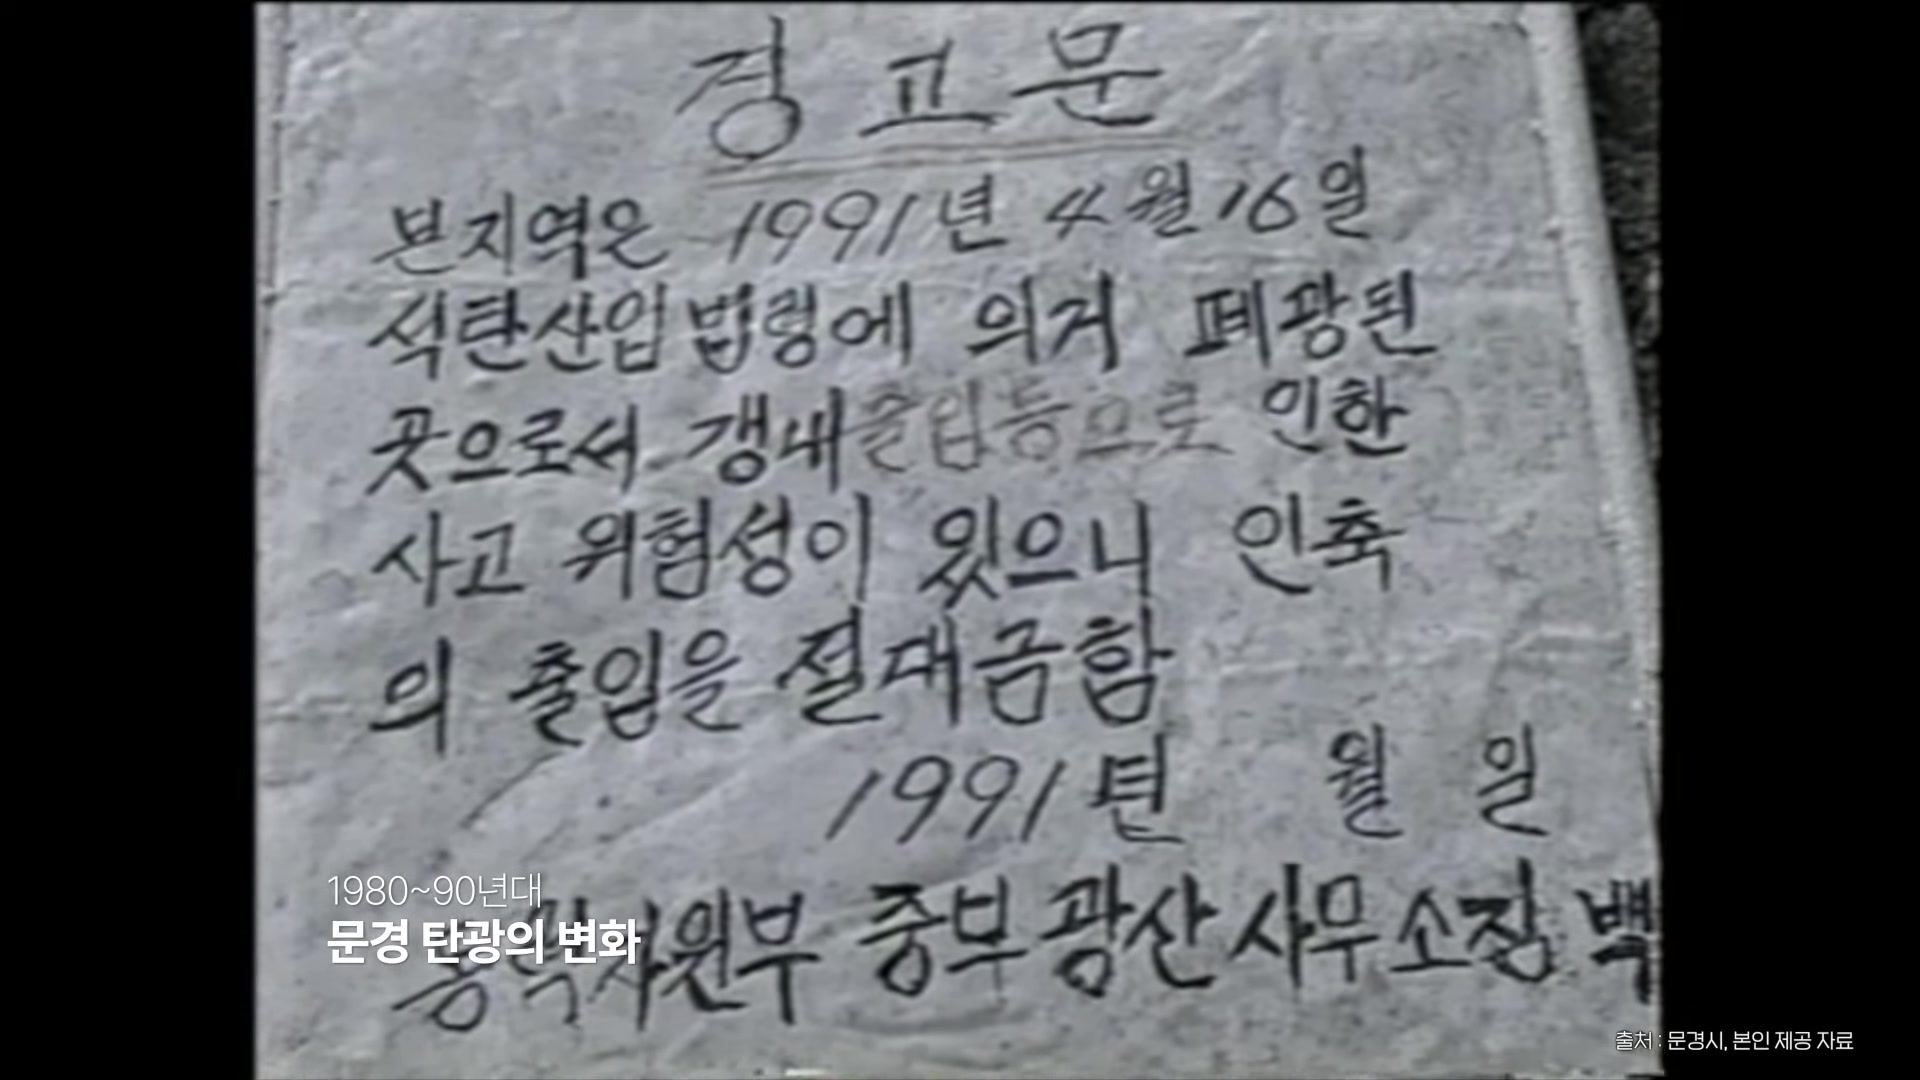 경고문
본지역은 1991년 4월 16일
석탄산업법령에 의거 폐광된
곳으로서 갱내출입등으로 인한
사고 위험성이 있으니 인축
의 출입을 절대금함
1991년 월 일
동력자원부 중부광산사무소장 백
1980~90년대
문경 탄광의 변화
출처 : 문경시, 본인 제공 자료